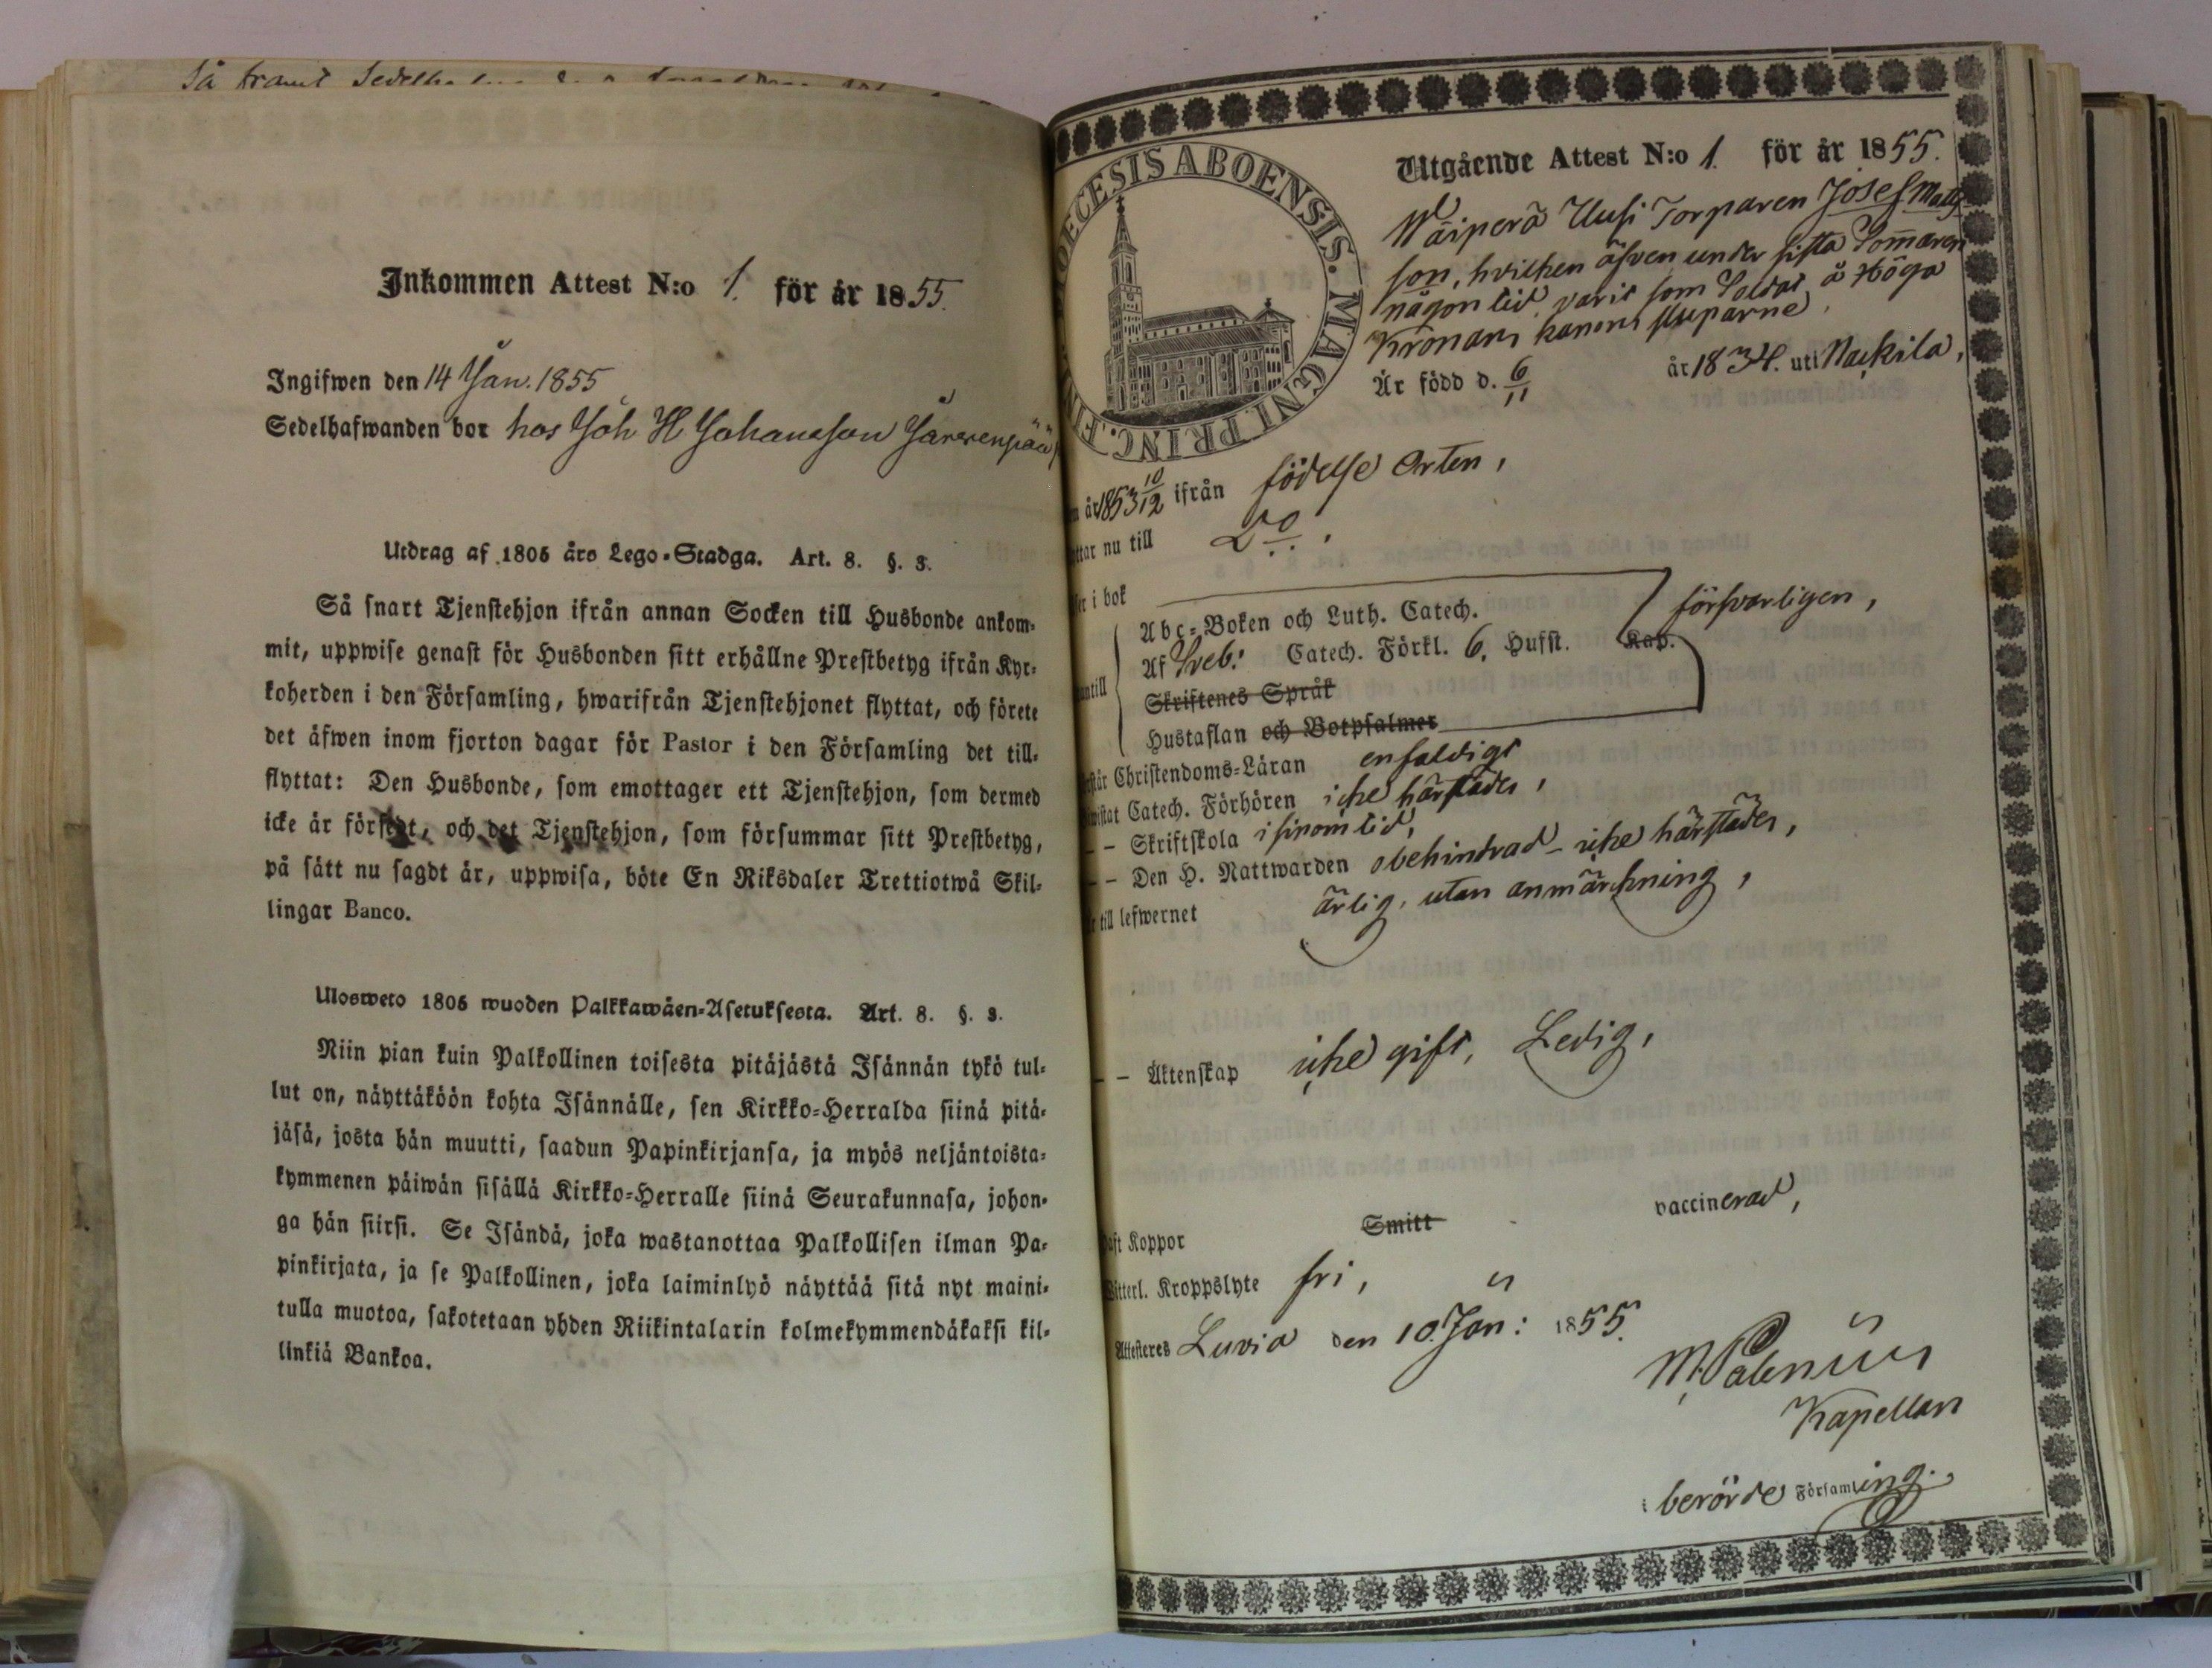 Så framt
Inkommen Attest N:o 1. för år 1855.
Ingifwen den 14 Jan. 1855
Sedelhafwanden bor hos Joh H Johansson Järvenpää
Utdrag af 1805 års Lego-Stadga. Art. 8. §. 3.
Så snart Tjenstehjon ifrån annan Socken till Husbonde ankom-
mit, uppwise genast för Husbonden sitt erhållne Prestbetyg ifrån Kyr-
koherden i den Församling, hwarifrån Tjenstehjonet flyttat, och förete
det äfwen inom fjorton dagar för Pastor i den Församling det till-
flyttat: Den Husbonde, som emottager ett Tjenstehjon, som dermed
icke är försedt, och det Tjenstehjon, som försummar sitt Prestbetyg,
på sätt nu sagdt är, uppwisa, böte En Riksdaler Trettiotwå Skil-
lingar Banco.
Ulosweto 1805 wuoden Palkkawäen-Asetuksesta. Art. 8. §. 3.
Niin pian kuin Palkollinen toisesta pitäjästä Isännän tykö tul-
lut on, näyttäköön kohta Isännälle, sen Kirkko-Herralda siinä pitä-
jäsä, josta hän muutti, saadun Papinkirjansa, ja myös neljäntoista-
kymmenen päiwän sisällä Kirkko-Herralle siinä Seurakunnasa, johon-
ga hän siirsi. Se Isändä, joka wastanottaa Palkollisen ilman Pa-
pinkirjata, ja se Palkollinen, joka laiminlyö näyttää sitä nyt maini-
tulla muotoa, sakotetaan yhden Riikintalarin kolmekymmendäkaksi kil-
linkiä Bankoa.
DIOECESIS ABOENSIS. MAGNI PRINC. FIN
Utgående Attest N:o 1. för år 1855.
Wäiperä Uusi Torparen Josef Matts
son, hvilken äfven under sista Sommaren
någon tid varit som Soldat å Höga
Kronans kanon sluparne,
Är född d. 6/11 år 1834. uti Nackila,
år 1853 10/12 ifrån födelse Orten,
ttar nu till D:o.
er i bok
Abc-Boken och Luth. Catech. försvarligen,
Af Sveb: Catech. Förkl. 6. Hufst. Kap.
antill
Skriftenes Språk
Hustaflan och Botpsalmer
rstår Christendoms-Läran enfaldigt
wistat Catech. Förhören icke härstädes,
– – Skriftskola i sinom tid,
– – Den H. Nattwarden obehindrad - icke härstädes,
r till lefwernet ärlig, utan anmärkning,
– – Äktenskap icke gift, Ledig,
aft Koppor Smitt vaccinerad,
itterl. Kroppslyte fri,
Attesteres Luvia den 10. Jan: 1855.
M. Palenius
Kapellan
i berörde Församling.